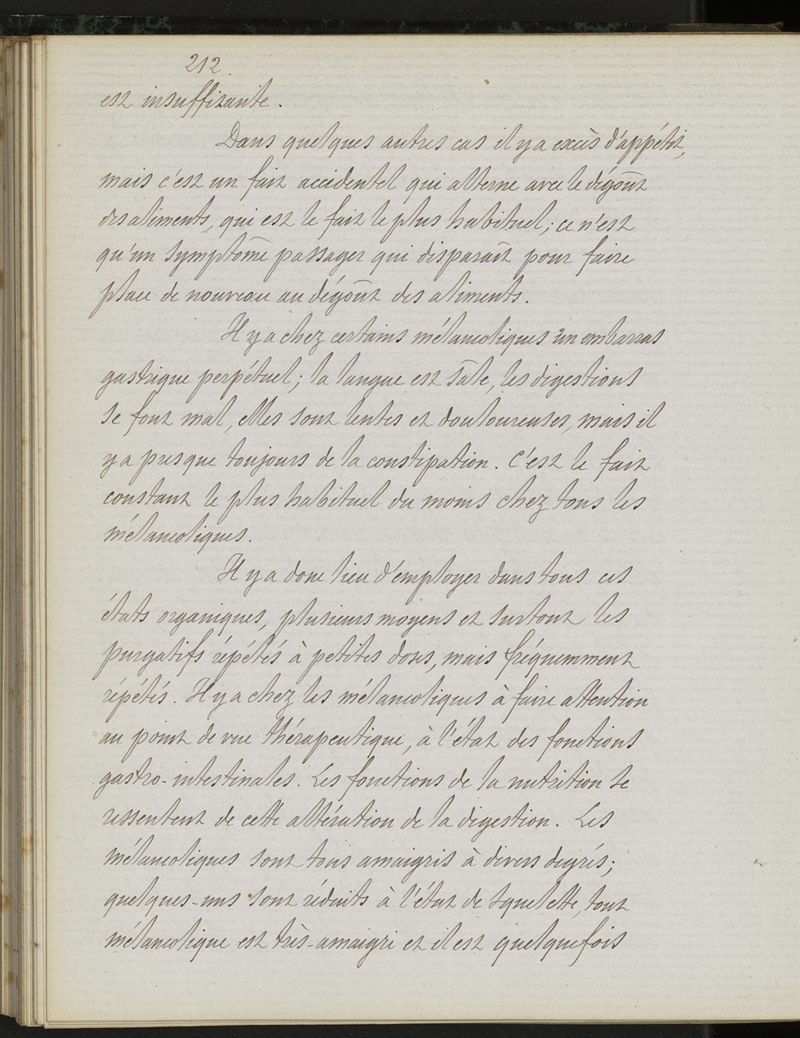 212.
est insuffisante.
Dans quelques autres cas il y a excès d'appétit,
mais c'est un fait accidentel qui alterne avec le dégoût
des aliments, qui est le fait le plus habituel; ce n'est
qu'un symptôme passager qui disparaît pour faire
place de nouveau au dégoût des aliments.
Il y a chez certains mélancoliques un embarras
gastrique perpétuel; la langue est sâle, les digestions
se font mal, elles sont lentes et douloureuses, mais il
y a presque toujours de la constipation. C'est le fait
constant le plus habituel du moins chez tous les
mélancoliques.
Il y a donc lieu d'employer dans tous ces
états organiques, plusieurs moyens et surtout les
purgatifs répétés à petites doses, mais fréquemment
répétés. Il y a chez les mélancoliques à faire attention
au point de vue thérapeutique, à l'état des fonctions
gastro-intestinales. Les fonctions de la nutrition se
ressentent de cette altération de la digestion. Les
mélancoliques sont tous amaigris à divers degrés;
quelques-uns sont réduits à l'état de squelette, tout
mélancolique est très-amaigri et il est quelquefois